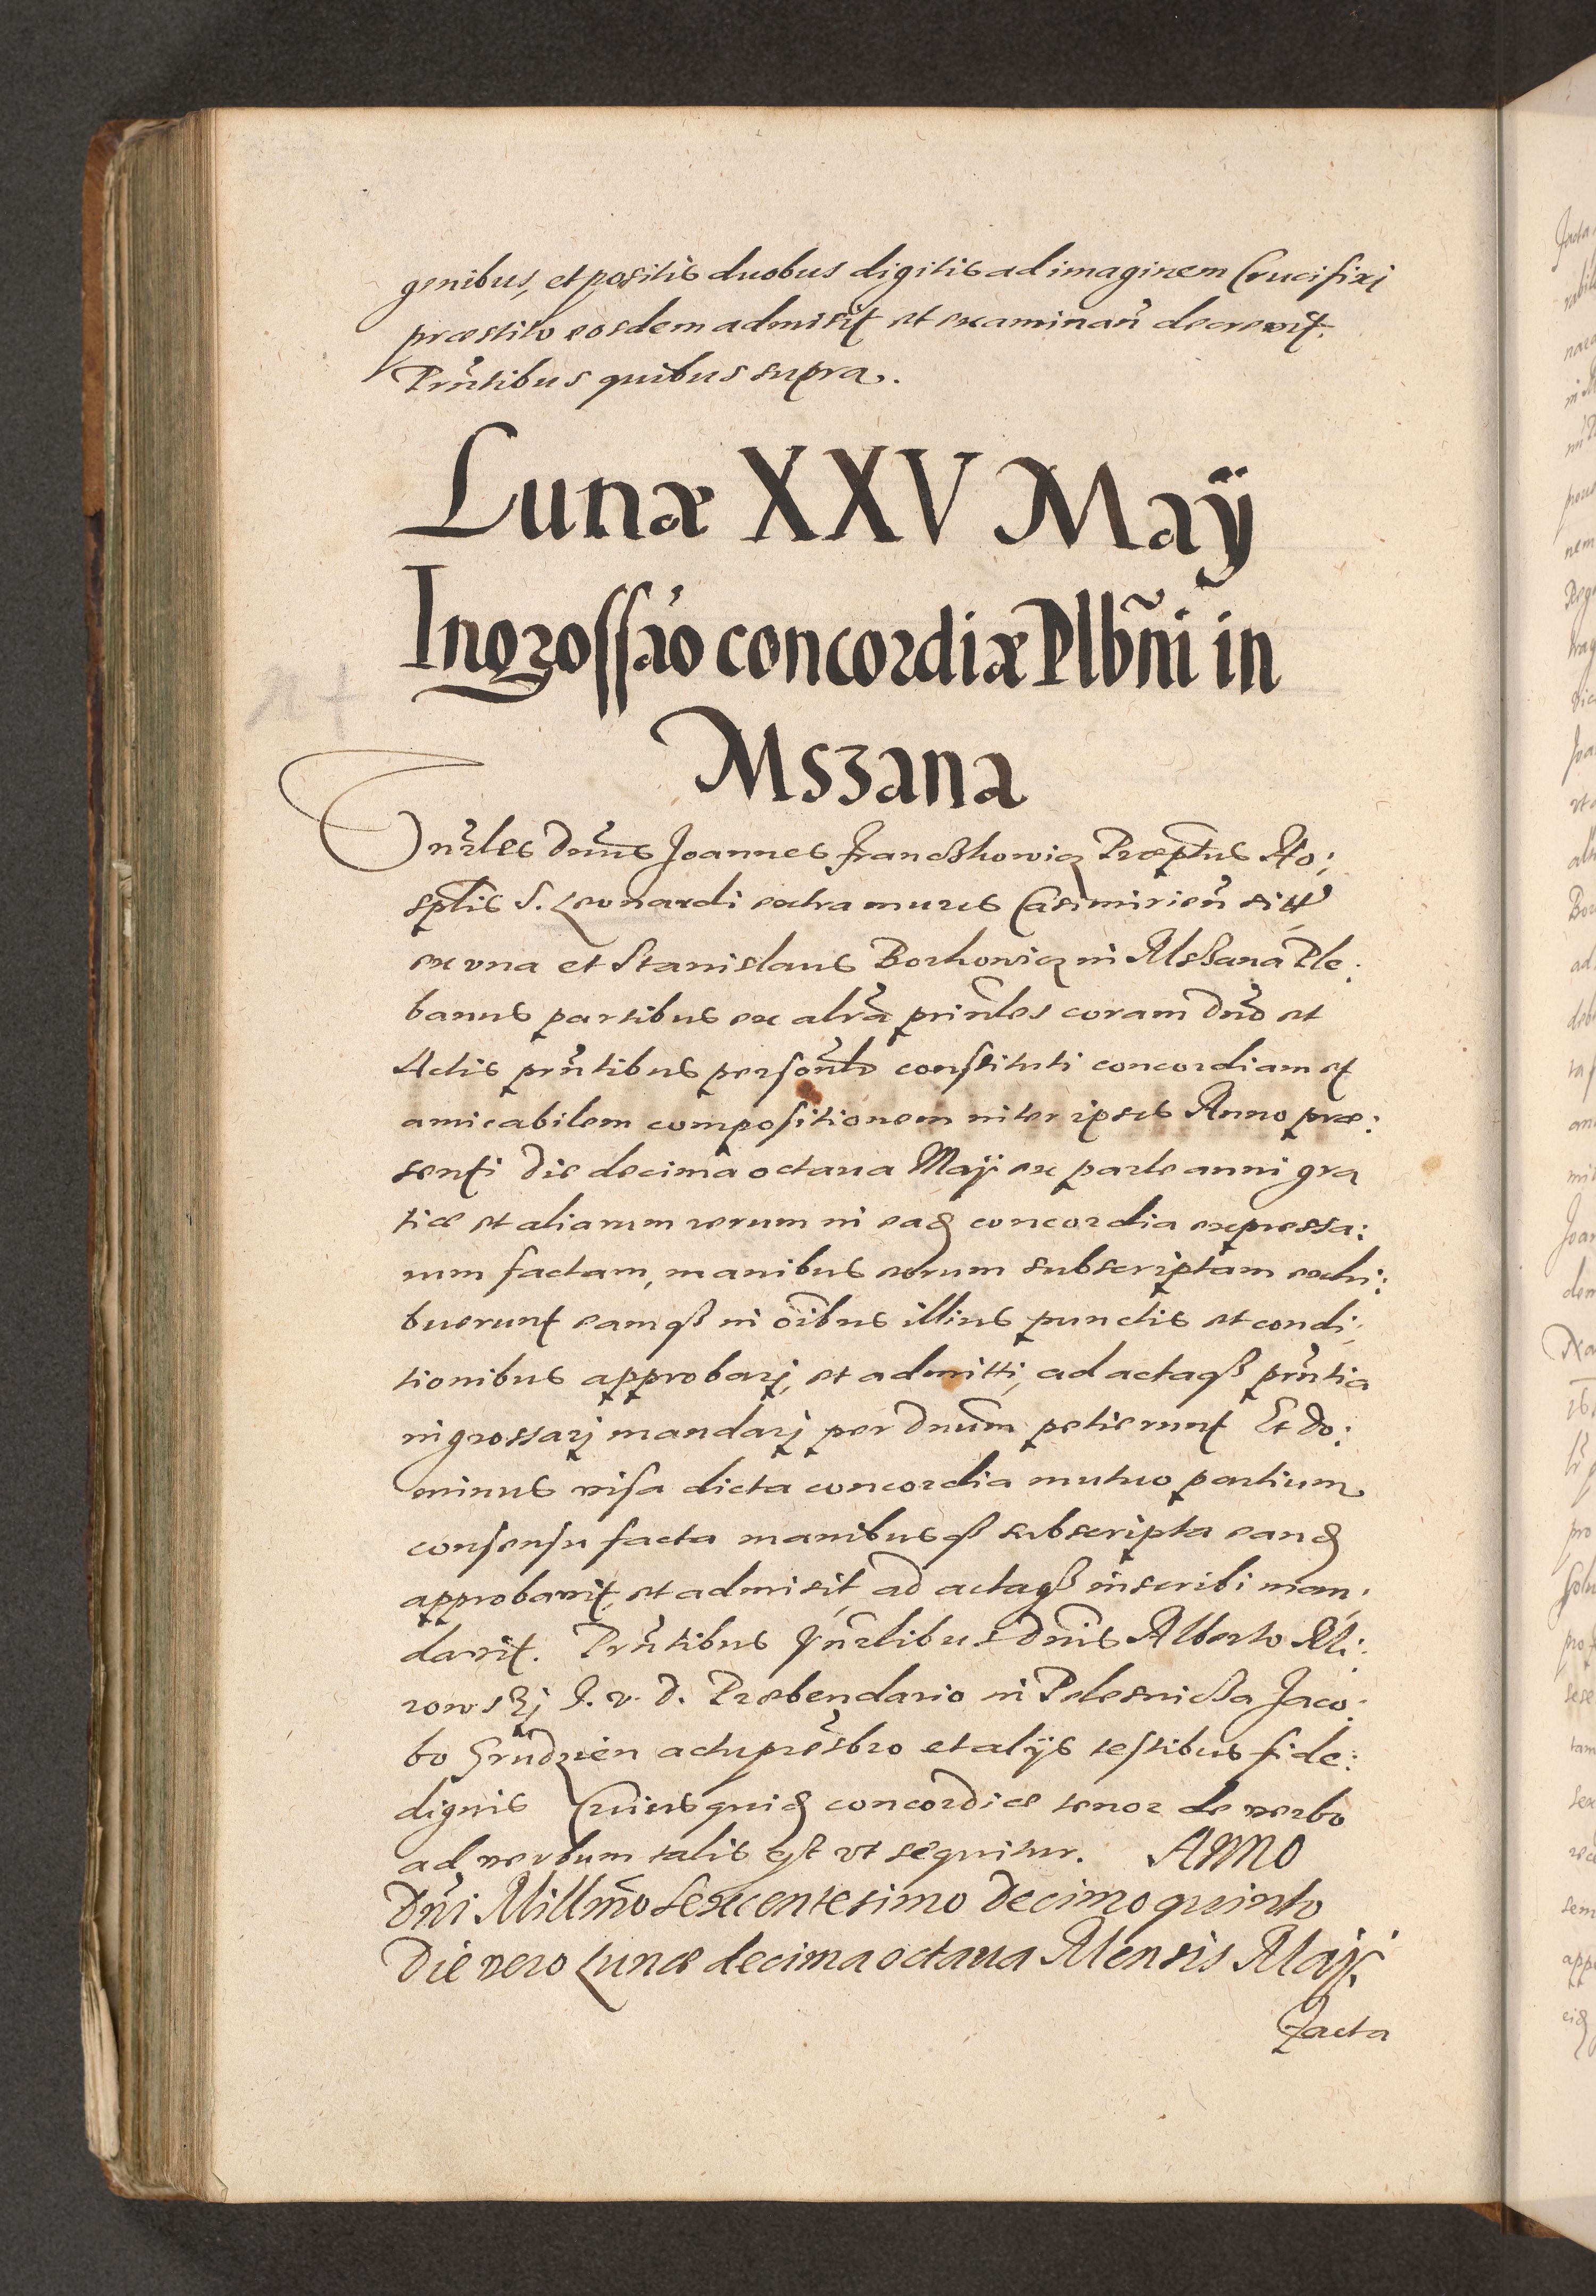 genibus, et positis duobus digitis ad imaginem Crucifixi
præstito eosdem admisit et examinan̄ decrevit.
Prñtibus quibus supra.
Lunæ XXV Maÿ
Ingrossão concordiæ Plbñi in
Mszana
Vnrles Dnus Joannes Franckowicz Præptus Ho:
splis S. Leonardi extra muros Casimirien̄ sitt
ex vna et Stanislaus Borkowicz in Mszana Ple:
banus partibus ex altrã prinles coram Dnõ et
Actis prñtibus personlr constituti concordiam et
amicabilem compositionem inter ipsos Anno præ:
senti die decima octaua Maÿ ex parte anni gra
tiæ et aliarum rerum in eadꝫ concordia expressa:
rum factam, manibus eorum subscriptam exhi:
buerunt eamqꝫ in oĩbus illius punctis et condi:
tionibus approbarj, et admitti, ad actaqꝫ prñtia
ingrossarj mandarj per Dnum petierunt Et Do:
minus visa dicta concordia mutuo partium
consensu facta manibusqꝫ subscripta eandꝫ
approbavit, et admisit, ad actaqꝫ inscribi man:
davit. Prñtibus Vnrlibus Dnis Alberto Mi:
rowskj J. v. D. Præbendario in Pelesnicza Jaco:
bo Grudzien actu presbro et alijs testibus fide:
dignis Cuiusquidꝫ concordiæ tenor de verbo
ad verbum talis est vt sequitur. Anno
Dñi Millmõ Sexcentesimo Decimo quinto
Die vero Lunæ decima octaua Mensis Maij
Facta